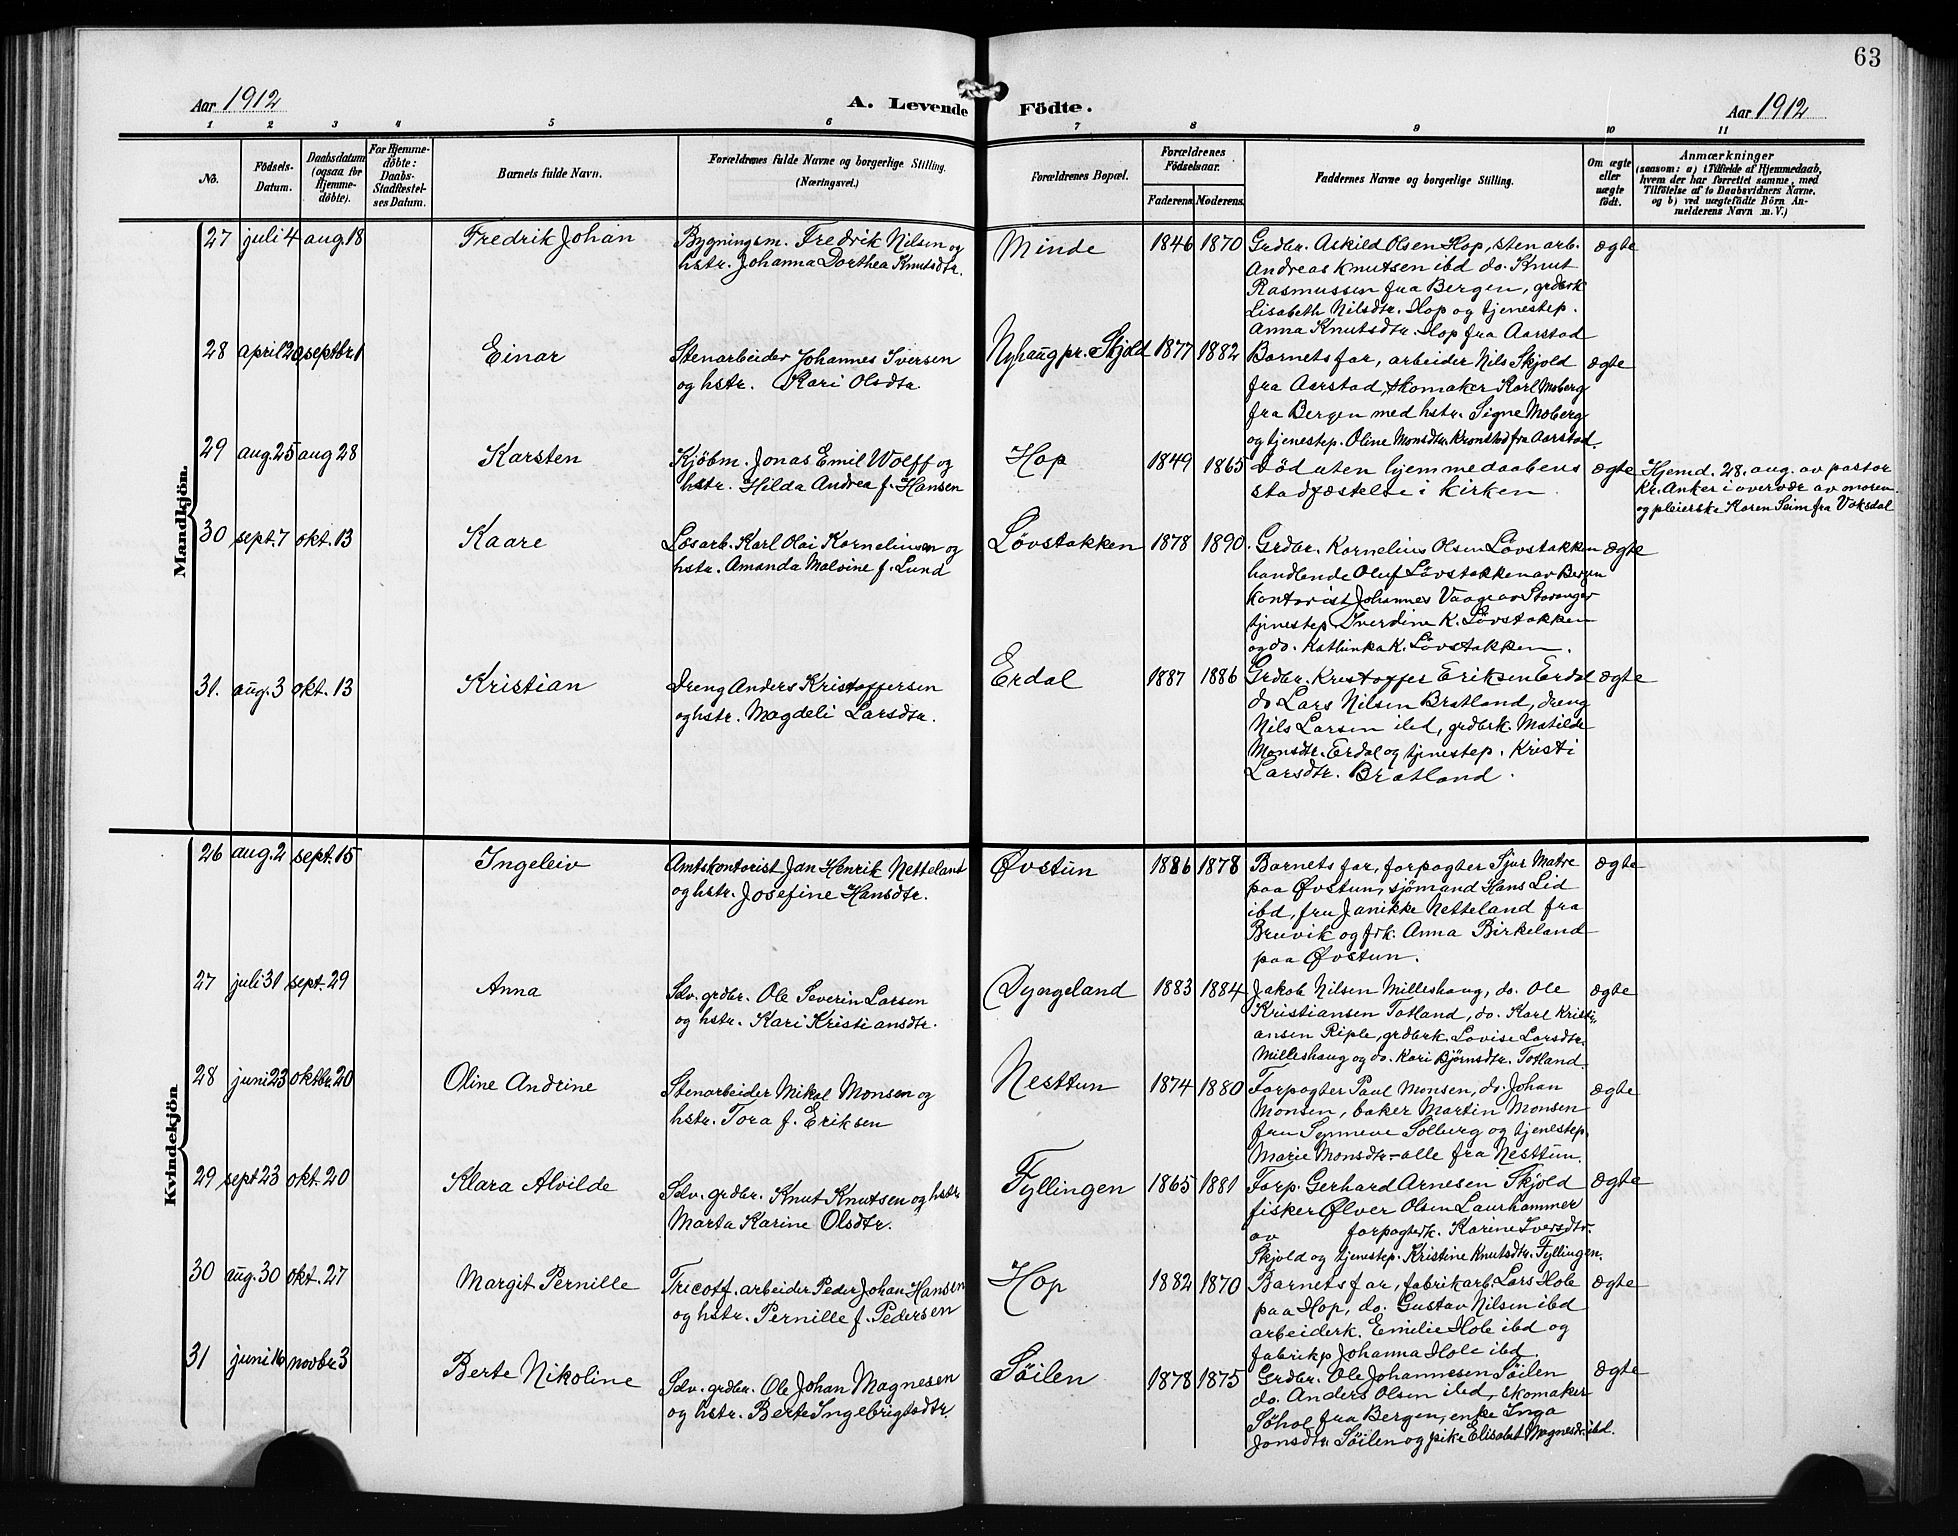 63
Aar 1912 A. Levende Födte. Aar 1912
1 2 3 4 5 6 7 8 9 10 11
No.
Födsels-
Datum.
Daabsdatum
(ogsaa for
Hjemme-
döbte).
For Hjemme-
döbte:
Daabs-
Stadfæstel-
ses Datum.
Barnets fulde Navn.
Forældrenes fulde Navne og borgerlige Stilling.
(Næringsvei.)
Forældrenes Bopæl.
Forældrenes
Födselsaar.
Faderens. Moderens.
Faddernes Navne og borgerlige Stilling.
Om ægte
eller
uægte
födt.
Anmærkninger
(saasom: a) i Tilfælde af Hjemmedaab,
hvem der har forrettet samme, med
Tilföielse af to Daabsvidners Navne,
og b) ved uægtefödte Börn An-
melderens Navn m. V.)
Mandkjön.
27 juli 4 aug 18 Fredrik Johan
Bygningsm. Fredrik Nilsen og
hstr. Johanna Dorthea Knutsdtr.
Minde 1846 1870
Grdbr. Askild Olsen Hop, sten arb.
Andreas Knutsen ibd do. Knut
Rasmussen fra Bergen, grdbrk
Lisabeth Nilsdtr. Hop og tjenestep.
Anna Knutsdtr. Hop fra Aarstad
ægte
28 april 20 septbr 1 Einar
Stenarbeider Johannes Iversen
og hstr. Kari Olsdtr.
Nyhaug pr. Skjold 1877 1882
Barnets far, arbeider Nils Skjold
fra Aarstad, skomaker Karl Moberg
fra Bergen med hstr. Signe Moberg
og tjenestep. Oline Monsdtr. Kronstad fra Aarstad.
ægte
29 aug. 25 aug 28 Karsten
Kjöbm. Jonas Emil Wolff og
hstr. Hilda Andrea f. Hansen
Hop 1849 1865
Död uten hjemmedaabens
stadfæstelse i kirken.
ægte
Hjemd. 28. aug. av pastor
Kr. Anker i overvær av moren
og pleierske Karen Seim fra Voksdal
30 sept. 7 okt. 13 Kaare
Løsarb. Karl Olai Kornelinsen og
hstr. Amanda Malvine f. Lund
Løvstakken 1878 1890.
Grdbr. Kornelius Olsen Løvstakken
handlende Oluf Løvstakken av Bergen
kontorist Johannes Vaage av Stavanger
tjenestep. Iverdine K. Løvstakken
og do. Kathinka K. Løvstakken.
ægte
31. aug. 3 okt. 13 Kristian
Dreng Anders Kristoffersen
og hstr. Magdeli Larsdtr.
Erdal 1887 1886
Grdbr. Kristoffer Eriksen Erdal
do. Lars Nilsen Bratland, dreng
Nils Larsen ibd, grdbrk. Matilde
Monsdtr. Erdal og tjenestep. Kristi
Larsdtr. Bratland.
ægte
Kvindekjön
26 aug. 2 sept. 15 Ingeleiv
Amtskontorist Jan Henrik Netteland
og hstr. Josefine Hansdtr.
Øvstun 1886 1878
Barnets far, forpagter Sjur Matre
paa Øvstun, sjömand Hans Lid
ibd, fru Janikke Netteland fra
Bruvik og frk. Anna Birkeland
paa Øvstun.
ægte
27 juli 31 sept. 29 Anna
Selv. grdbr. Ole Severin Larsen
og hstr. Kari Kristiansdtr.
Dyngeland 1883 1884
Jakob Nilsen Milleshaug, do. Ole
Kristiansen Totland, do. Karl Kristi-
ansen Riple, grdbrk. Lovise Larsdtr.
Milleshaug og do. Kari Bjørnsdtr. Totland.
ægte
28 juni 23 oktbr. 20 Oline Andrine
Stenarbeider Mikal Monsen og
hstr. Tora f. Eriksen
Nesttun 1874 1880
Forpagter Paul Monsen, do. Johan
Monsen, baker Martin Monsen
fru Synneve Solberg og tjenestep.
Marie Monsdtr. - alle fra Nesttun.
ægte
29 sept 23 okt. 20 Klara Alvilde
Selv. grdbr. Knut Knutsen og hstr
Marta Karine Olsdtr.
Fyllingen 1865 1881
Forp. Gerhard Arnesen Skjold
fisker Ølver Olsen Laurhammer
av forpagterk. Karine Iversdtr.
Skjold og tjenestep. Kristine Knutsdtr. Fyllingen.
ægte
30 aug. 30 okt. 27 Margit Pernille
Tricotf. arbeider Peder Johan Hansen
og hstr. Pernille f. Pedersen
Hop 1882 1870
Barnets far, fabrikarb. Lars Hole
paa Hop, do. Gustav Nilsen ibd
arbeiderk. Emilie Hole ibd og
fabrikp Johanna Hole ibd.
ægte
31 juni 16 novbr. 3 Berte Nikoline
Selv. grdbr. Ole Johan Magnesen
og hstr. Berte Ingebrigtsdtr.
Søilen 1878 1875
Grdbr. Ole Johannesen Søilen
do. Anders Olsen ibd, skomaker
Søhol fra Bergen, enke Inga
Jonsdtr. Søilen og pike Elisabet Magnesdtr. ibd.
ægte